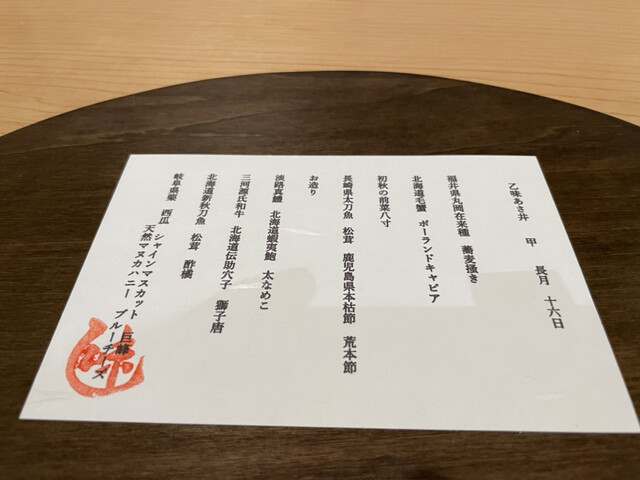 乙味あさ井　甲　長月　十六日
福井県丸岡在来種　蕎麦掻き
北海道毛蟹　ポーランドキャビア
初秋の前菜八寸
長崎県太刀魚　松茸　鹿児島県本枯節　荒本節
お造り
淡路真鱧　北海道蝦夷鮑　太なめこ
三河源氏和牛　北海道伝助穴子　獅子唐
北海道新秋刀魚　松茸　酢橘
岐阜県栗　西瓜　シャインマスカット　巨峰
天然マヌカハニー　ブルーチーズ
味